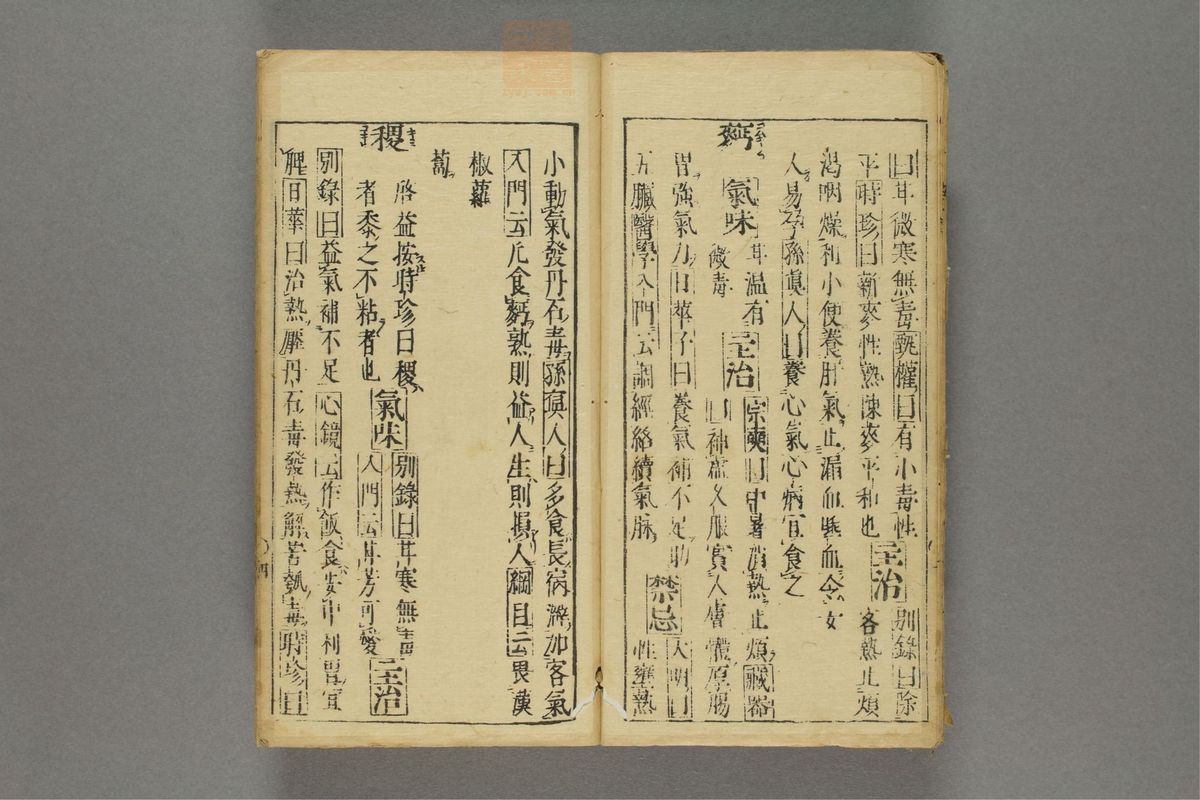 曰甘微寒無毒甄權曰有小毒性
平時珍曰新麥性熱陳麥平和也 主治 別錄曰除客熱止煩
渴咽燥利小便養肝氣止漏血唾血令女
人易孕孫眞人曰養心氣心病宜食之
麪 氣味 甘温有微毒 主治 宗奭曰中暑消熱止煩藏器
曰補虛久服實人膚體厚腸
胃強氣力日華子曰養氣補不足助
五臟醫學入門云調經絡續氣脉 禁忌 大明曰性壅熱
小動氣發丹石毒孫眞人曰多食長宿澼加客氣
入門云凡食麪熟則益人生則損人綱目云畏漢
椒蘿
蔔
稷 啓益按時珍曰稷
者黍之不粘者也 氣味 別錄曰甘寒無毒入門云甘芳可愛 主治
別錄曰益氣補不足心鏡云作飯食安中利胃宜
脾日華曰治熱壓丹石毒發熱解苦瓠毒時珍曰
四